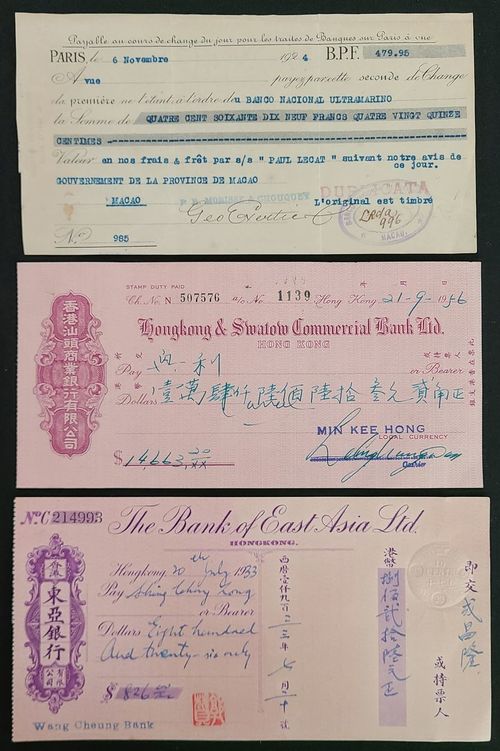 Payable au cours de change du jour pour les traites de Banques sur Paris à vue
PARIS, le 6 Novembre 1924 B.P.F. 479.95
A vue payez par cette seconde de Change
la première ne l'étant à l'ordre du BANCO NACIONAL ULTRAMARINO
la Somme de QUATRE CENT SOIXANTE DIX NEUF FRANCS QUATRE VINGT QUINZE
CENTIMES
Valeur en nos frais & frêt par s/s "PAUL LECAT" suivant notre avis de
ce jour.
GOUVERNEMENT DE LA PROVINCE DE MACAO
DUPLICATA
MACAO
L'original est timbré
MACAU
No. 985
STAMP DUTY PAID
Ch. No. N 507576 a/c No. 1139 Hong Kong 21-9-1956
年 月 日
Hongkong & Swatow Commercial Bank Ltd.
HONG KONG
香港汕頭商業銀行有限公司
祈兌
Pay
或持票人
or Bearer
港幣
Dollars 壹萬肆仟陸佰陸拾叁元貳角正
MIN KEE HONG
LOCAL CURRENCY
$ 14663.20
Cashier
No. C 214993
The Bank of East Asia Ltd.
HONGKONG.
Hongkong 20th July 1933
Pay Shing Ching Loong
or Bearer
Dollars Eight hundred
And twenty-six only
$ 826
香港
東亞銀行
有限公司
西曆壹仟九百三三年七月二十號
港幣捌佰貳拾陸元正
即交 成昌隆 或持票人
Wang Cheung Bank